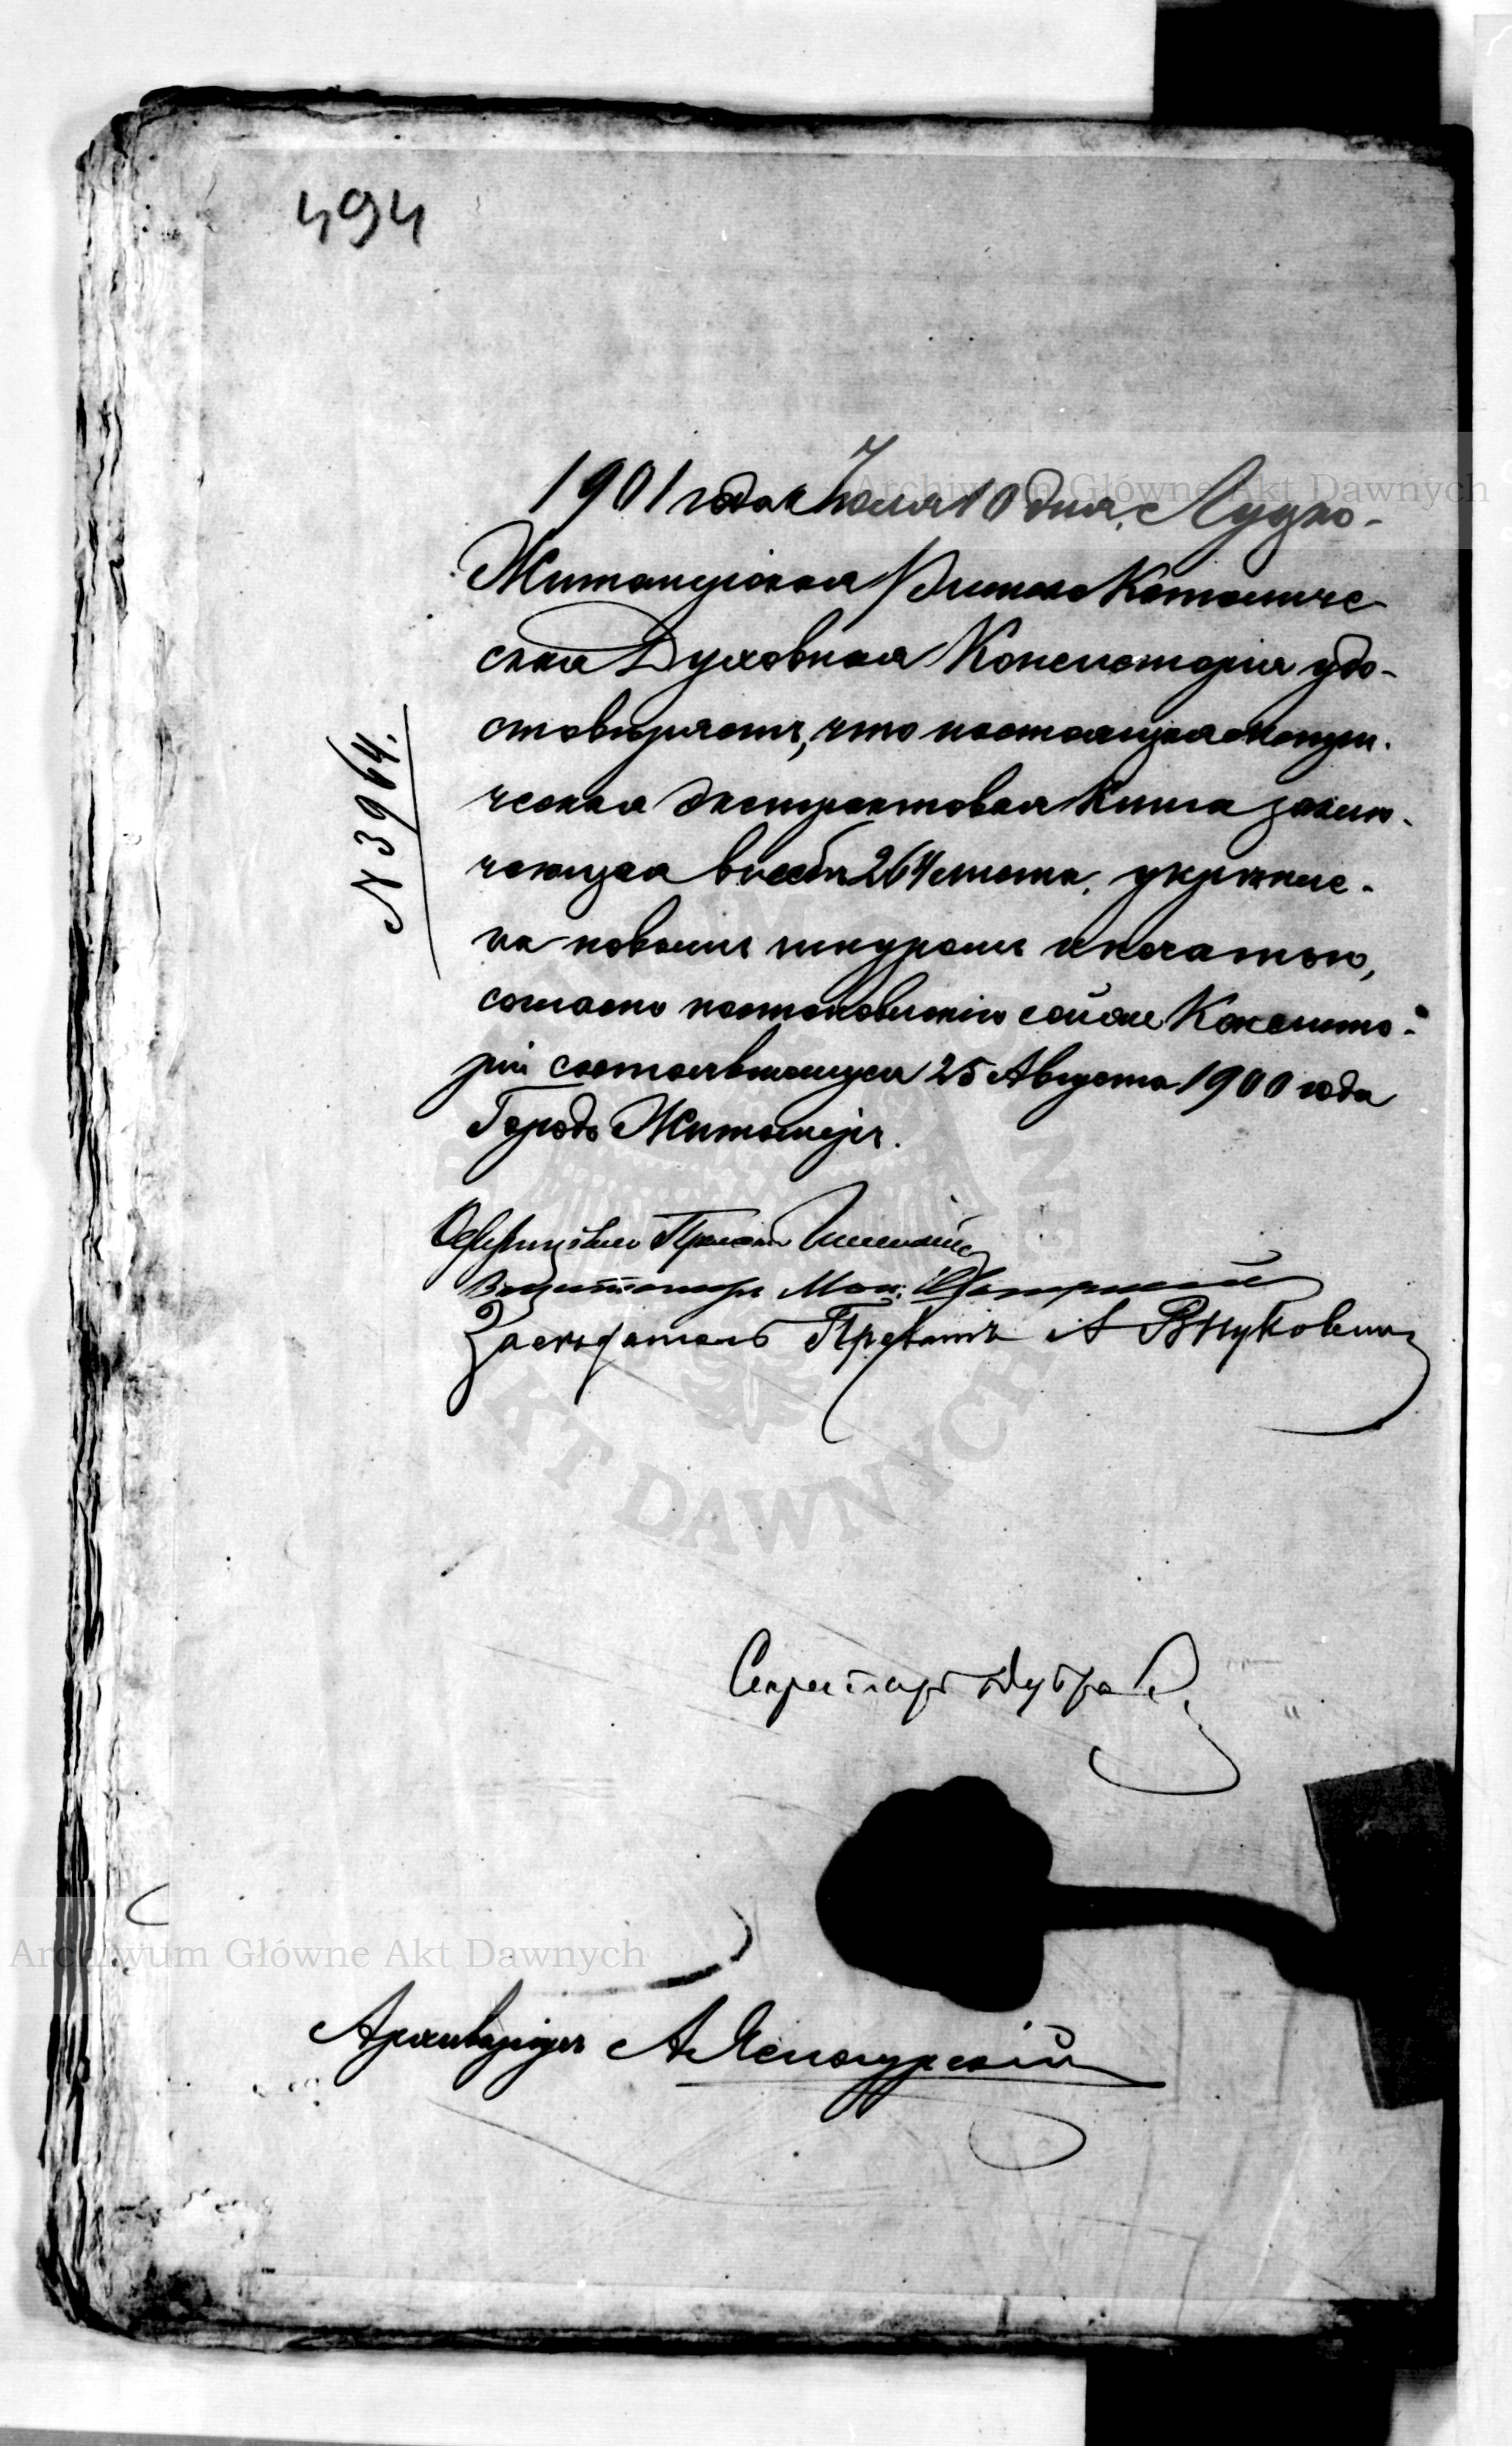 494
1901 года Июля 10 дня, Луцко-
Житомирская Римско Католиче-
ская Духовная Консисторія удо-
стовѣряетъ, что настоящая метри-
ческая экстрактовая книга заклю-
чающая въ себѣ 264 листа, укрѣпле-
на новымъ шнуромъ и печатью,
согласно постановленію сей же Консисто-
ріи состоявшемуся 25 Августа 1900 года
Городъ Житомиръ.
N 3964.
Прелатъ
Визитаторъ
Засѣдатель Прелатъ А Внуковичъ
Секретарь
Архиваріусъ А Ясногурскій
Archiwum Główne Akt Dawnych
Archiwum Główne Akt Dawnych
AKT DAWNYCH